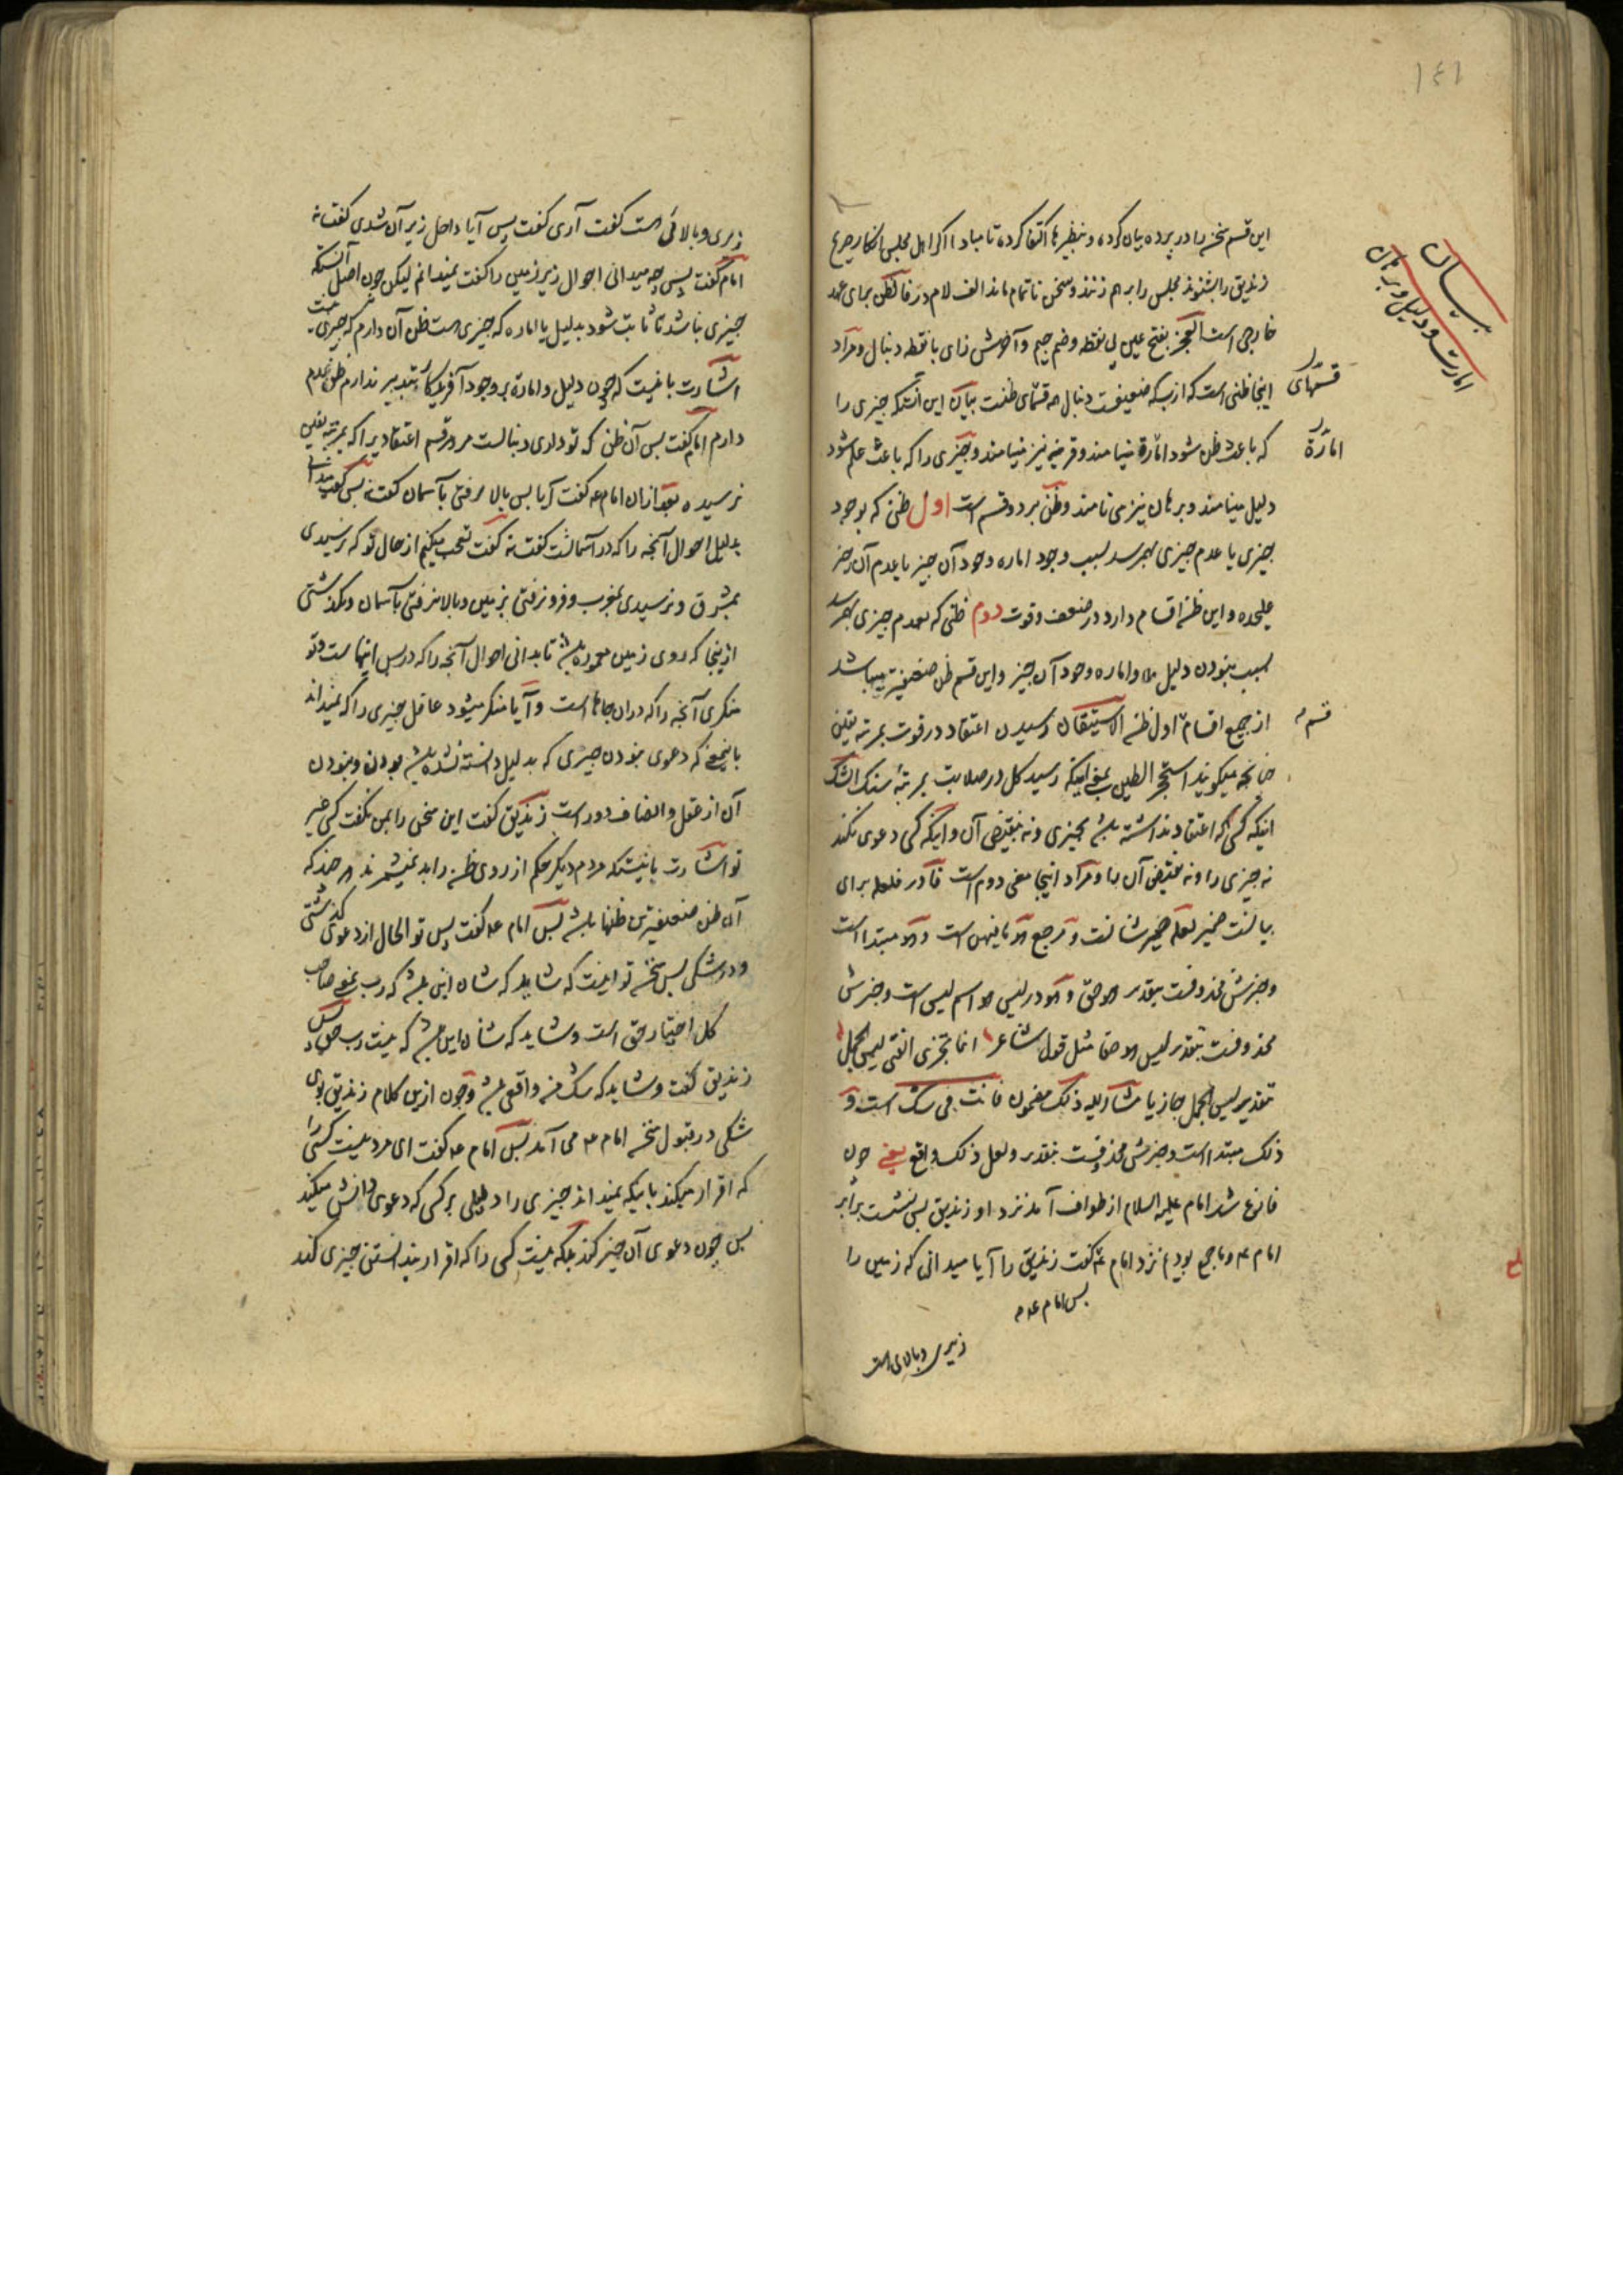 ۱۴۱
این قسم سخن را در پرده بیان کرده و بنظیرها اکتفا کرده تا مبادا اکر اهل مجلس انکار صریح
زندیق را بشنوند مجلس را برهم زنند و سخن ناتمام ماند الف لام در فالظن برای عهد
خارجی است العجز بفتح عین بی نقطه و ضم جیم و آخرش زای با نقطه دنبال و مراد
اینجا ظنی است که از بس که ضعیفست دنبال همه قسمهای ظنست بیان این آنستکه چیزی را
که باعث ظن شود امارة مینامند و قرینه نیز مینامند و چیزی را که باعث علم شود
دلیل مینامند و برهان نیز می نامند و ظن بر دو قسم است اول ظنی که بوجود
چیزی یا عدم چیزی بهم رسد بسبب وجود اماره وجود آن چیز یا عدم آن چیز
علیحده و این ظن اقسام دارد در ضعف و قوت دوم ظنی که بعدم چیزی بهم رسد
بسبب نبودن دلیل و اماره وجود آن چیز و این قسم ظن ضعیفتر میباشد
از جمیع اقسام اول ظن الاستیقان رسیدن اعتقاد در قوت بمرتبه یقین
چنانچه میکویند استحجر الطین بمعنی اینکه رسید کل در صلابت بمرتبه سنک الشک
اینکه کسی اعتقاد نداشته باشد بچیزی و نه بنقیض آن و اینکه کسی دعوی نکند
نه چیزی را و نه نقیض آن را و مراد اینجا معنی دوم است فا در فلعله برای
بیانست ضمیر لعله ضمیر شانست و مرجع هو ما فیهن است و هو مبتدا است
و خبرش محذوفست بتقدیر هو حق و هو در لیس هو اسم لیس است و خبرش
محذوفست بتقدیر لیس هو حقا مثل قول شاعر انما یجزی الفتی لیس الجمل
تقدیر لیس الجمل جازیا مشار الیه ذلک مضمون فانت فی شک است و
ذلک مبتدا است و خبرش محذوفست بتقدیر ولعل ذلک واقع یعنی چون
فارغ شد امام علیه السلام از طواف آمد نزد او زندیق پس نشست برابر
امام ع و ما جمع بودیم نزد امام ع کفت زندیق را آیا میدانی که زمین را
پس امام ع
زیری و بالائی است
بیان
امارت و دلیل و برهان
قسمهای
امارة
قسم
زیری و بالائی هست کفت آری کفت پس آیا داخل زیر آن شدی کفت نه
امام کفت پس چه میدانی احوال زیر زمین را کفت نمیدانم لیکن چون اصل آنستکه
چیزی نباشد تا ثابت شود بدلیل یا اماره که چیزی هست ظن آن دارم که چیزی نیست
اشارت باینست که چون دلیل و امارة بر وجود آفریدکار بتدبیر ندارم ظن عدم
دارم امام کفت پس آن ظن که تو داری دنبالست مر هر قسم اعتقادیرا که بمرتبه یقین
نرسیده بعد ازان امام ع کفت آیا پس بالا رفتی بآسمان کفت نه پس کفت
بدلیل احوال آنچه را که در آسمانست کفت نه کفت تعجب میکنم از حال تو که نرسیدی
بمشرق و نرسیدی بمغرب و فرو نرفتی بزمین و بالا نرفتی بآسمان و نکذشتی
ازینجا که روی زمین معموره باشد تا بدانی احوال آنچه را که در پس اینهاست و تو
منکری آنچه را که دران جاها است و آیا منکر میشود عاقل چیزی را که نمیداند
باینمعنی که دعوی نبودن چیزی که بدلیل دانسته نشده باشد بودن و نبودن
آن از عقل و انصاف دور است زندیق کفت این سخن را بمن نکفت کسی غیر
تو اشارت باینستکه مردم دیکر حکم از روی ظن را بد نمیشمرند هر چند که
آن ظن ضعیفترین ظنها باشد پس امام ع کفت پس تو الحال از دعوی کذشتی
و در شکی پس سخن تو اینست که شاید که شان این باشد که رب یعنی صاحب
کل اختیار حق است و شاید که شان این باشد که نیست رب حق پس
زندیق کفت و شاید که شک من واقعی باشد و چون ازین کلام زندیق بوی
شکی در قبول سخن امام ع می آمد پس امام ع کفت ای مرد نیست کسی را
که اقرار میکند باینکه نمیداند چیزی را دلیلی بر کسی که دعوی دانش میکند
پس چون دعوی آن چیز کند بلکه نیست کسی را که اقرار بندانستن چیزی کند